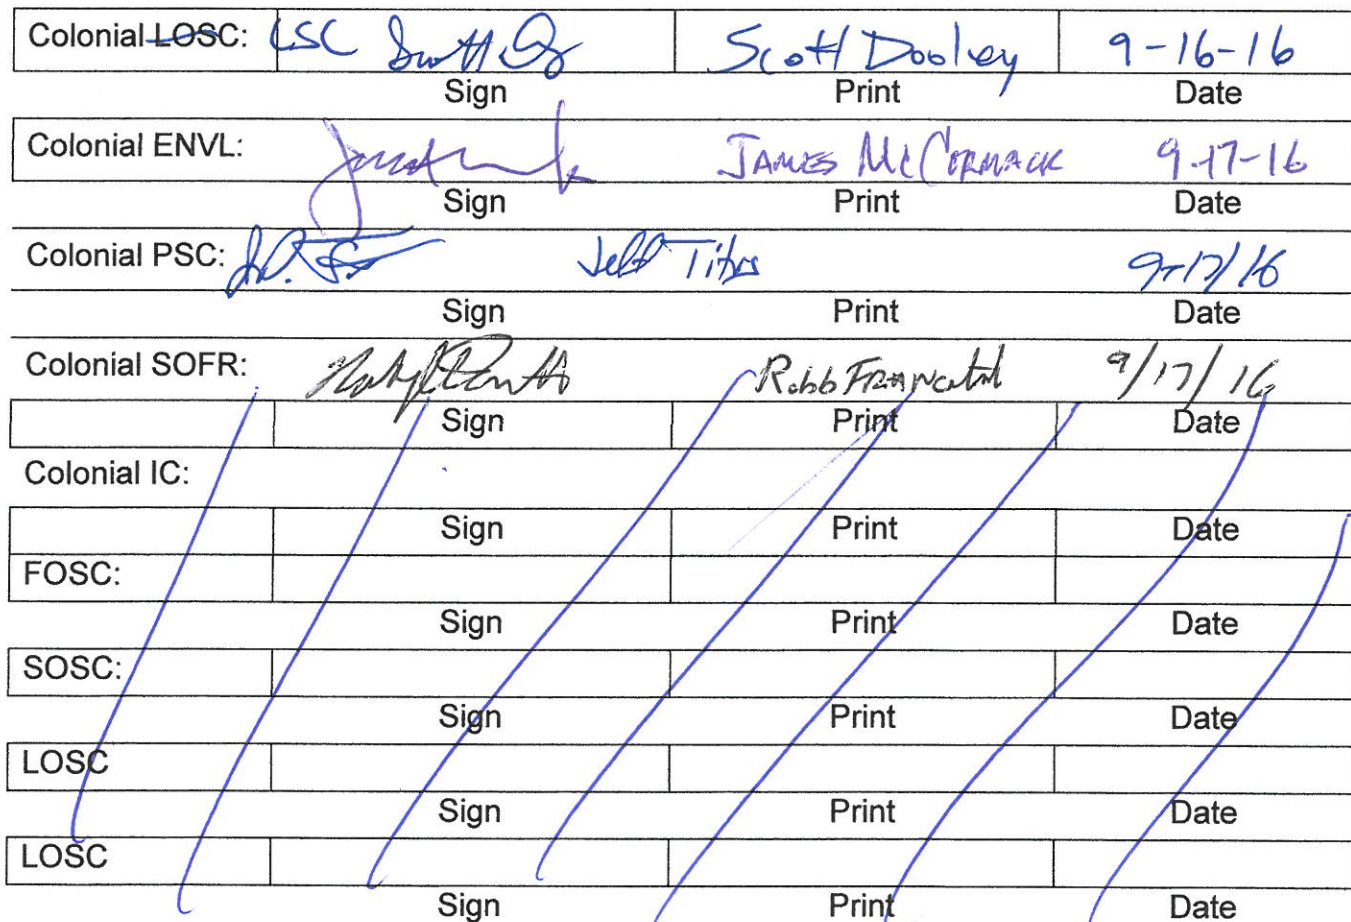 Colonial LOSC: LSC Scott Dooley 9-16-16
Sign Print Date
Colonial ENVL: JAMES McCORMACK 9-17-16
Sign Print Date
Colonial PSC: Jeff Titus 9/17/16
Sign Print Date
Colonial SOFR: Robb 9/17/16
Sign Print Date
Colonial IC:
Sign Print Date
FOSC:
Sign Print Date
SOSC:
Sign Print Date
LOSC
Sign Print Date
LOSC
Sign Print Date